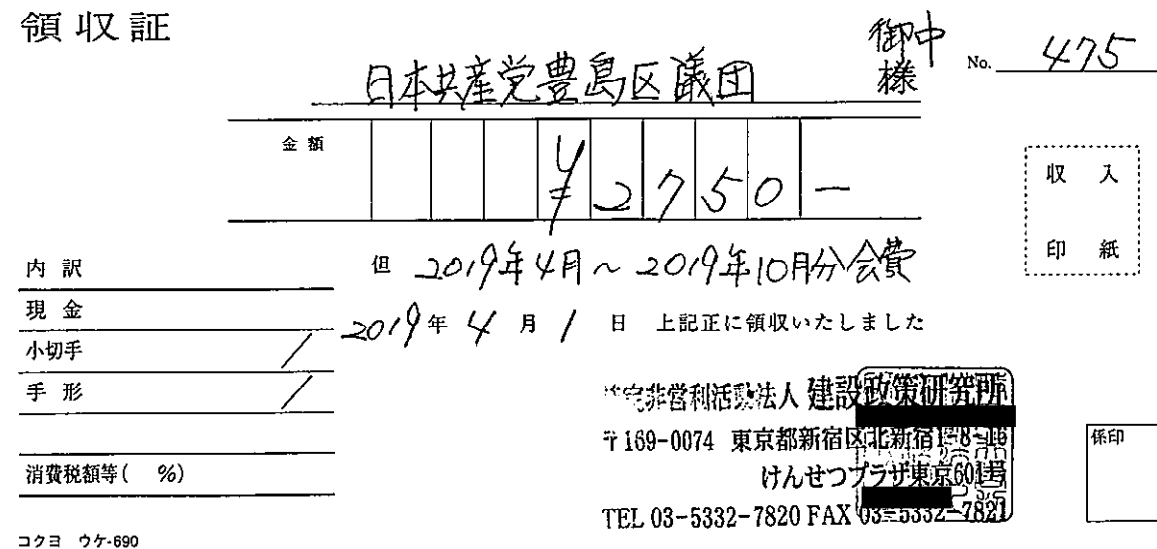 領収証
御中
日本共産党豊島区議団 様
No. 475
金額 ¥2750-
収入
印紙
但 2019年4月～2019年10月分会費
2019年4月1日 上記正に領収いたしました
内訳
現金
小切手
手形
消費税額等( %)
特定非営利活動法人 建設政策研究所
〒169-0074 東京都新宿区北新宿1-8-16
けんせつプラザ東京601号
TEL 03-5332-7820 FAX 03-5332-7821
係印
コクヨ ウケ-690